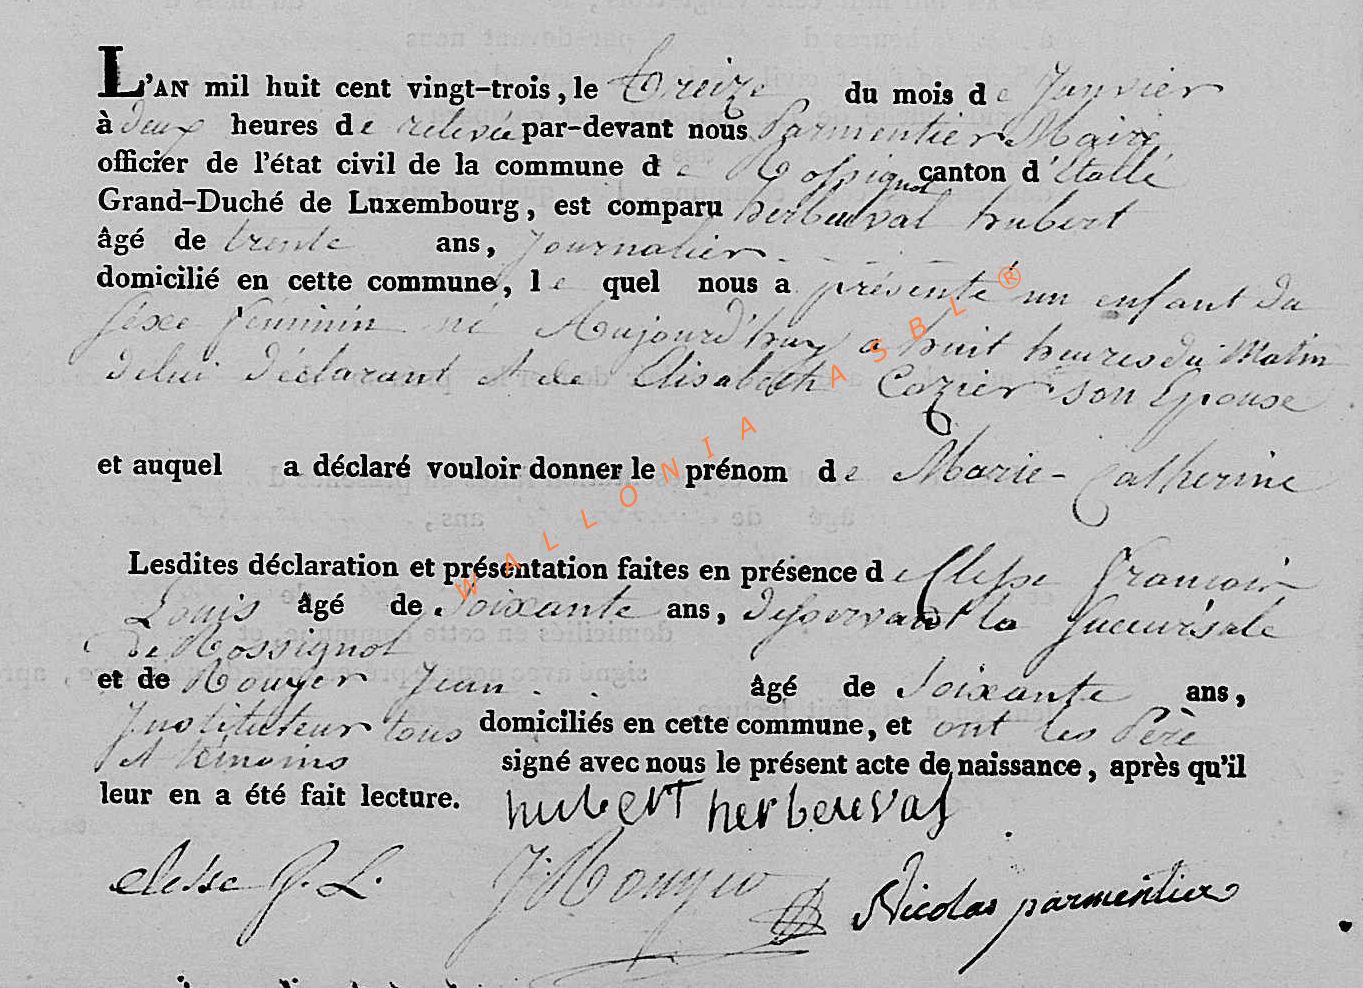 L'AN mil huit cent vingt-trois, le treize du mois de Janvier
à deux heures de relevée par-devant nous Parmentier Maire
officier de l'état civil de la commune de Rossignol canton d'Etalle
Grand-Duché de Luxembourg, est comparu herbeuval hubert
âgé de trente ans, Journalier
domicilié en cette commune, le quel nous a présenté un enfant du
sexe féminin né Aujourd'huy a huit heures du Matin
de lui déclarant et de Elisabeth Cozier son Epouse
et auquel a déclaré vouloir donner le prénom de Marie-Catherine
Lesdites déclaration et présentation faites en présence de Clesse francois
Louis âgé de Soixante ans, desservant la Succursale
de Rossignol
et de Rouyer Jean âgé de Soixante ans,
Instituteur tous domiciliés en cette commune, et ont les Père
et témoins signé avec nous le présent acte de naissance, après qu'il
leur en a été fait lecture. hubert herbeuval
clesse f. L. J Rouyer Nicolas parmentier
WALLONIA ASBL ®